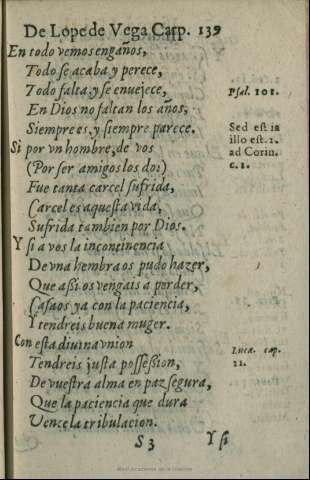 De Lope de Vega Carp. 139
En todo vemos engaños,
Todo ſe acaba y perece,
Todo falta, y ſe enuejece,
En Dios no faltan los años,
Siempre es, y ſiempre parece.
Pſal. 101.
Sed eſt in
illo eſt. 2.
ad Corin.
c. 1.
Si por vn hombre, de vos
(Por ſer amigos los dos)
Fue tanta carcel ſufrida,
Carcel es aqueſta vida,
Sufrida tambien por Dios.
Y ſi a vos la incontinencia
De vna hembra os pudo hazer,
Que aßi os vengais a perder,
Caſaos ya con la paciencia,
Y tendreis buena muger.
Con eſta diuina vnion
Tendreis juſta poſſeßion,
De vueſtra alma en paz ſegura,
Que la paciencia que dura
Vence la tribulacion.
Luca. cap.
21.
S 3
Y ſi